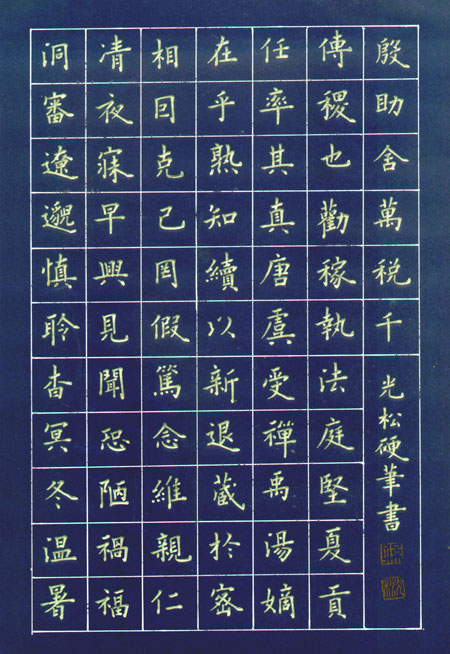 洞審遼邈慎聆杳冥冬温暑
凊夜寐早興見聞恐陋禍福
相囙克己罔假篤念維親仁
在乎熟知續以新退藏於密
任率其真唐虞受禪禹湯嫡
傳稷也勸稼執法庭堅夏貢
殷助舍萬税千
光松硬筆書